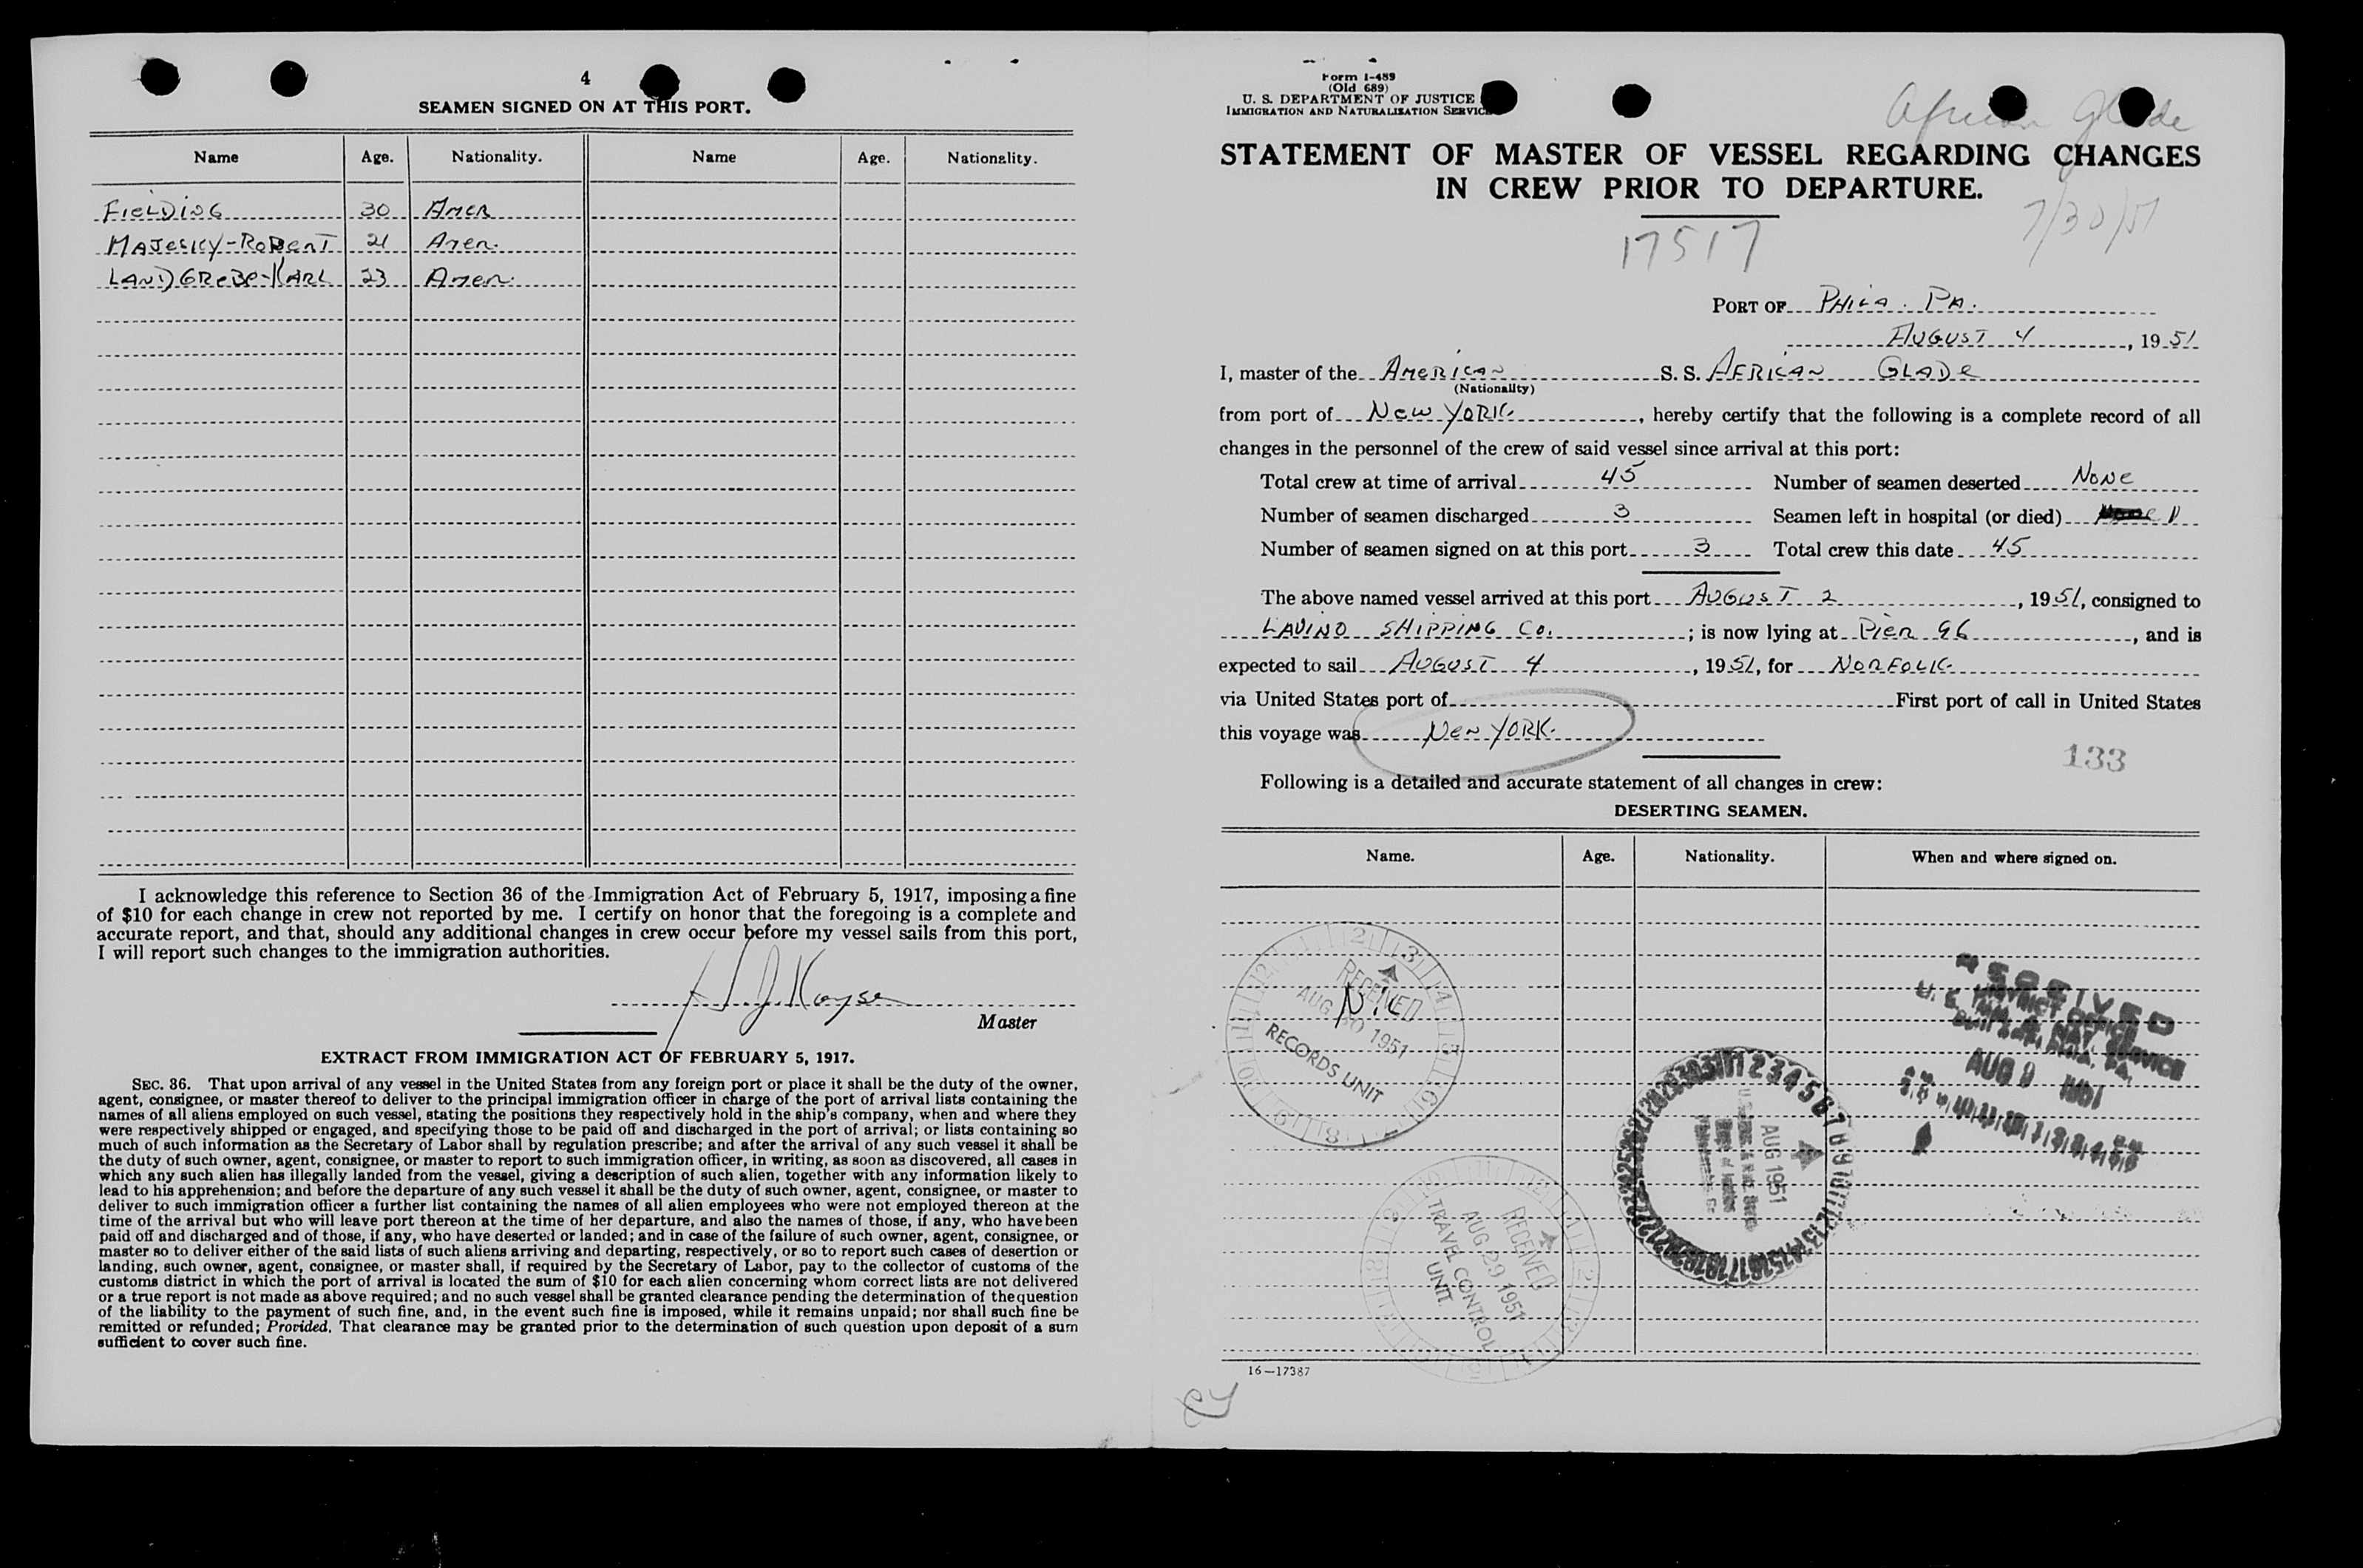 4
SEAMEN SIGNED ON AT THIS PORT.
Name Age. Nationality. Name Age. Nationality.
FIELDING 30 AMER
MAJESKY-ROBERT 21 AMER.
LANDGREBE-KARL 23 AMER.
I acknowledge this reference to Section 36 of the Immigration Act of February 5, 1917, imposing a fine
of $10 for each change in crew not reported by me. I certify on honor that the foregoing is a complete and
accurate report, and that, should any additional changes in crew occur before my vessel sails from this port,
I will report such changes to the immigration authorities.
Master
EXTRACT FROM IMMIGRATION ACT OF FEBRUARY 5, 1917.
SEC. 36. That upon arrival of any vessel in the United States from any foreign port or place it shall be the duty of the owner,
agent, consignee, or master thereof to deliver to the principal immigration officer in charge of the port of arrival lists containing the
names of all aliens employed on such vessel, stating the positions they respectively hold in the ship's company, when and where they
were respectively shipped or engaged, and specifying those to be paid off and discharged in the port of arrival; or lists containing so
much of such information as the Secretary of Labor shall by regulation prescribe; and after the arrival of any such vessel it shall be
the duty of such owner, agent, consignee, or master to report to such immigration officer, in writing, as soon as discovered, all cases in
which any such alien has illegally landed from the vessel, giving a description of such alien, together with any information likely to
lead to his apprehension; and before the departure of any such vessel it shall be the duty of such owner, agent, consignee, or master to
deliver to such immigration officer a further list containing the names of all alien employees who were not employed thereon at the
time of the arrival but who will leave port thereon at the time of her departure, and also the names of those, if any, who have been
paid off and discharged and of those, if any, who have deserted or landed; and in case of the failure of such owner, agent, consignee, or
master so to deliver either of the said lists of such aliens arriving and departing, respectively, or so to report such cases of desertion or
landing, such owner, agent, consignee, or master shall, if required by the Secretary of Labor, pay to the collector of customs of the
customs district in which the port of arrival is located the sum of $10 for each alien concerning whom correct lists are not delivered
or a true report is not made as above required; and no such vessel shall be granted clearance pending the determination of the question
of the liability to the payment of such fine, and, in the event such fine is imposed, while it remains unpaid; nor shall such fine be
remitted or refunded; Provided, That clearance may be granted prior to the determination of such question upon deposit of a sum
sufficient to cover such fine.
Form I-489
(Old 689)
U. S. DEPARTMENT OF JUSTICE
IMMIGRATION AND NATURALIZATION SERVICE
African Glade
STATEMENT OF MASTER OF VESSEL REGARDING CHANGES
IN CREW PRIOR TO DEPARTURE.
7/30/51
17517
PORT OF PHILA. PA.
AUGUST 4, 1951
I, master of the AMERICAN S. S. AFRICAN GLADE
(Nationality)
from port of NEW YORK, hereby certify that the following is a complete record of all
changes in the personnel of the crew of said vessel since arrival at this port:
Total crew at time of arrival 45 Number of seamen deserted NONE
Number of seamen discharged 3 Seamen left in hospital (or died)
Number of seamen signed on at this port 3 Total crew this date 45
The above named vessel arrived at this port AUGUST 2, 1951, consigned to
LAVINO SHIPPING CO.; is now lying at PIER 96, and is
expected to sail AUGUST 4, 1951, for NORFOLK
via United States port of First port of call in United States
this voyage was NEW YORK.
133
Following is a detailed and accurate statement of all changes in crew:
DESERTING SEAMEN.
Name. Age. Nationality. When and where signed on.
RECEIVED
AUG 30 1951
RECORDS UNIT
RECEIVED
AUG 29 1951
TRAVEL CONTROL
UNIT.
AUG 1951
RECEIVED
AUG 9 1951
16—17387